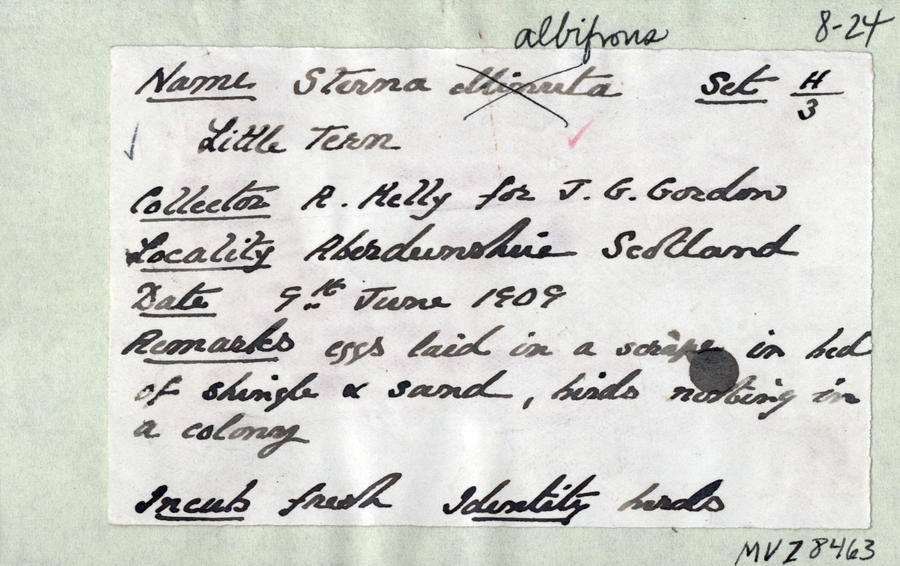 albifrons 8-24
Name Sterna Minuta Set H/3
Little Tern
Collector R. Kelly for J. G. Gordon
Locality Aberdeenshire Scotland
Date 9th June 1909
Remarks eggs laid in a scrape in bed
of shingle & sand, birds nesting in
a colony
Incub fresh Identity birds
MVZ 8463